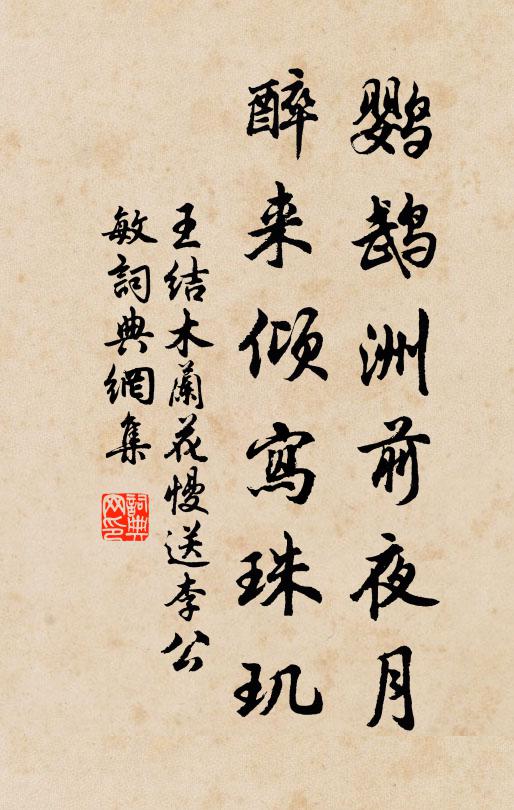 鹦鹉洲前夜月
醉来倾寫珠玑
王结木蘭花慢送李公
敏詞典網集
詞典网印